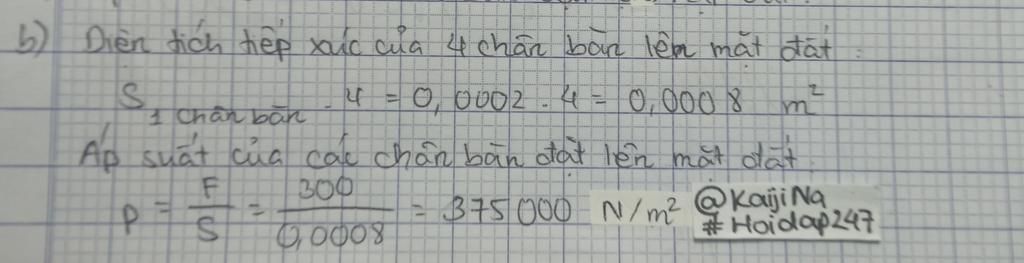 b) Diện tích tiếp xúc của 4 chân bàn lên mặt đất:
S 1 chân bàn . 4 = 0,0002 . 4 = 0,0008 m²
Áp suất của các chân bàn đặt lên mặt đất.
p = F/S = 300/0,0008 = 375000 N/m²
@KaijiNa
#Hoidap247